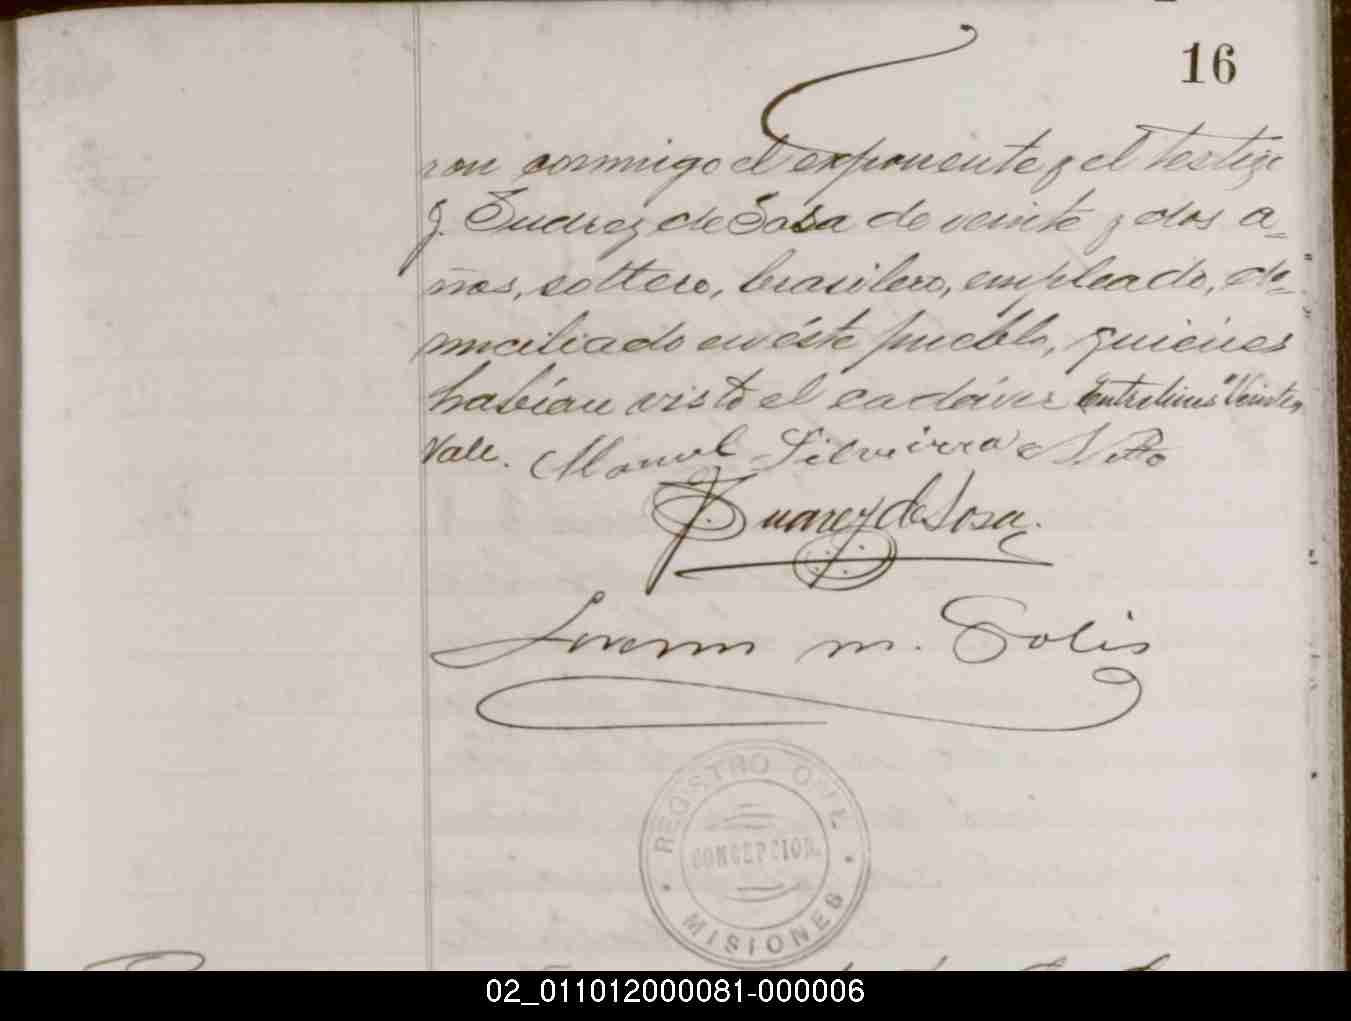 16
ron conmigo el exponente y el testigo
J. Suarez de Sosa de veinte y dos a=
ños, soltero, brasilero, empleado, do=
miciliado en éste pueblo, quiénes
habían visto el cadáver Entrelineas "Veinte"
Vale. Manuel Silveirra Netto
J. Suarez de Sosa.
m. Solis
REGISTRO CIVIL
CONCEPCION.
MISIONES
02_011012000081-000006